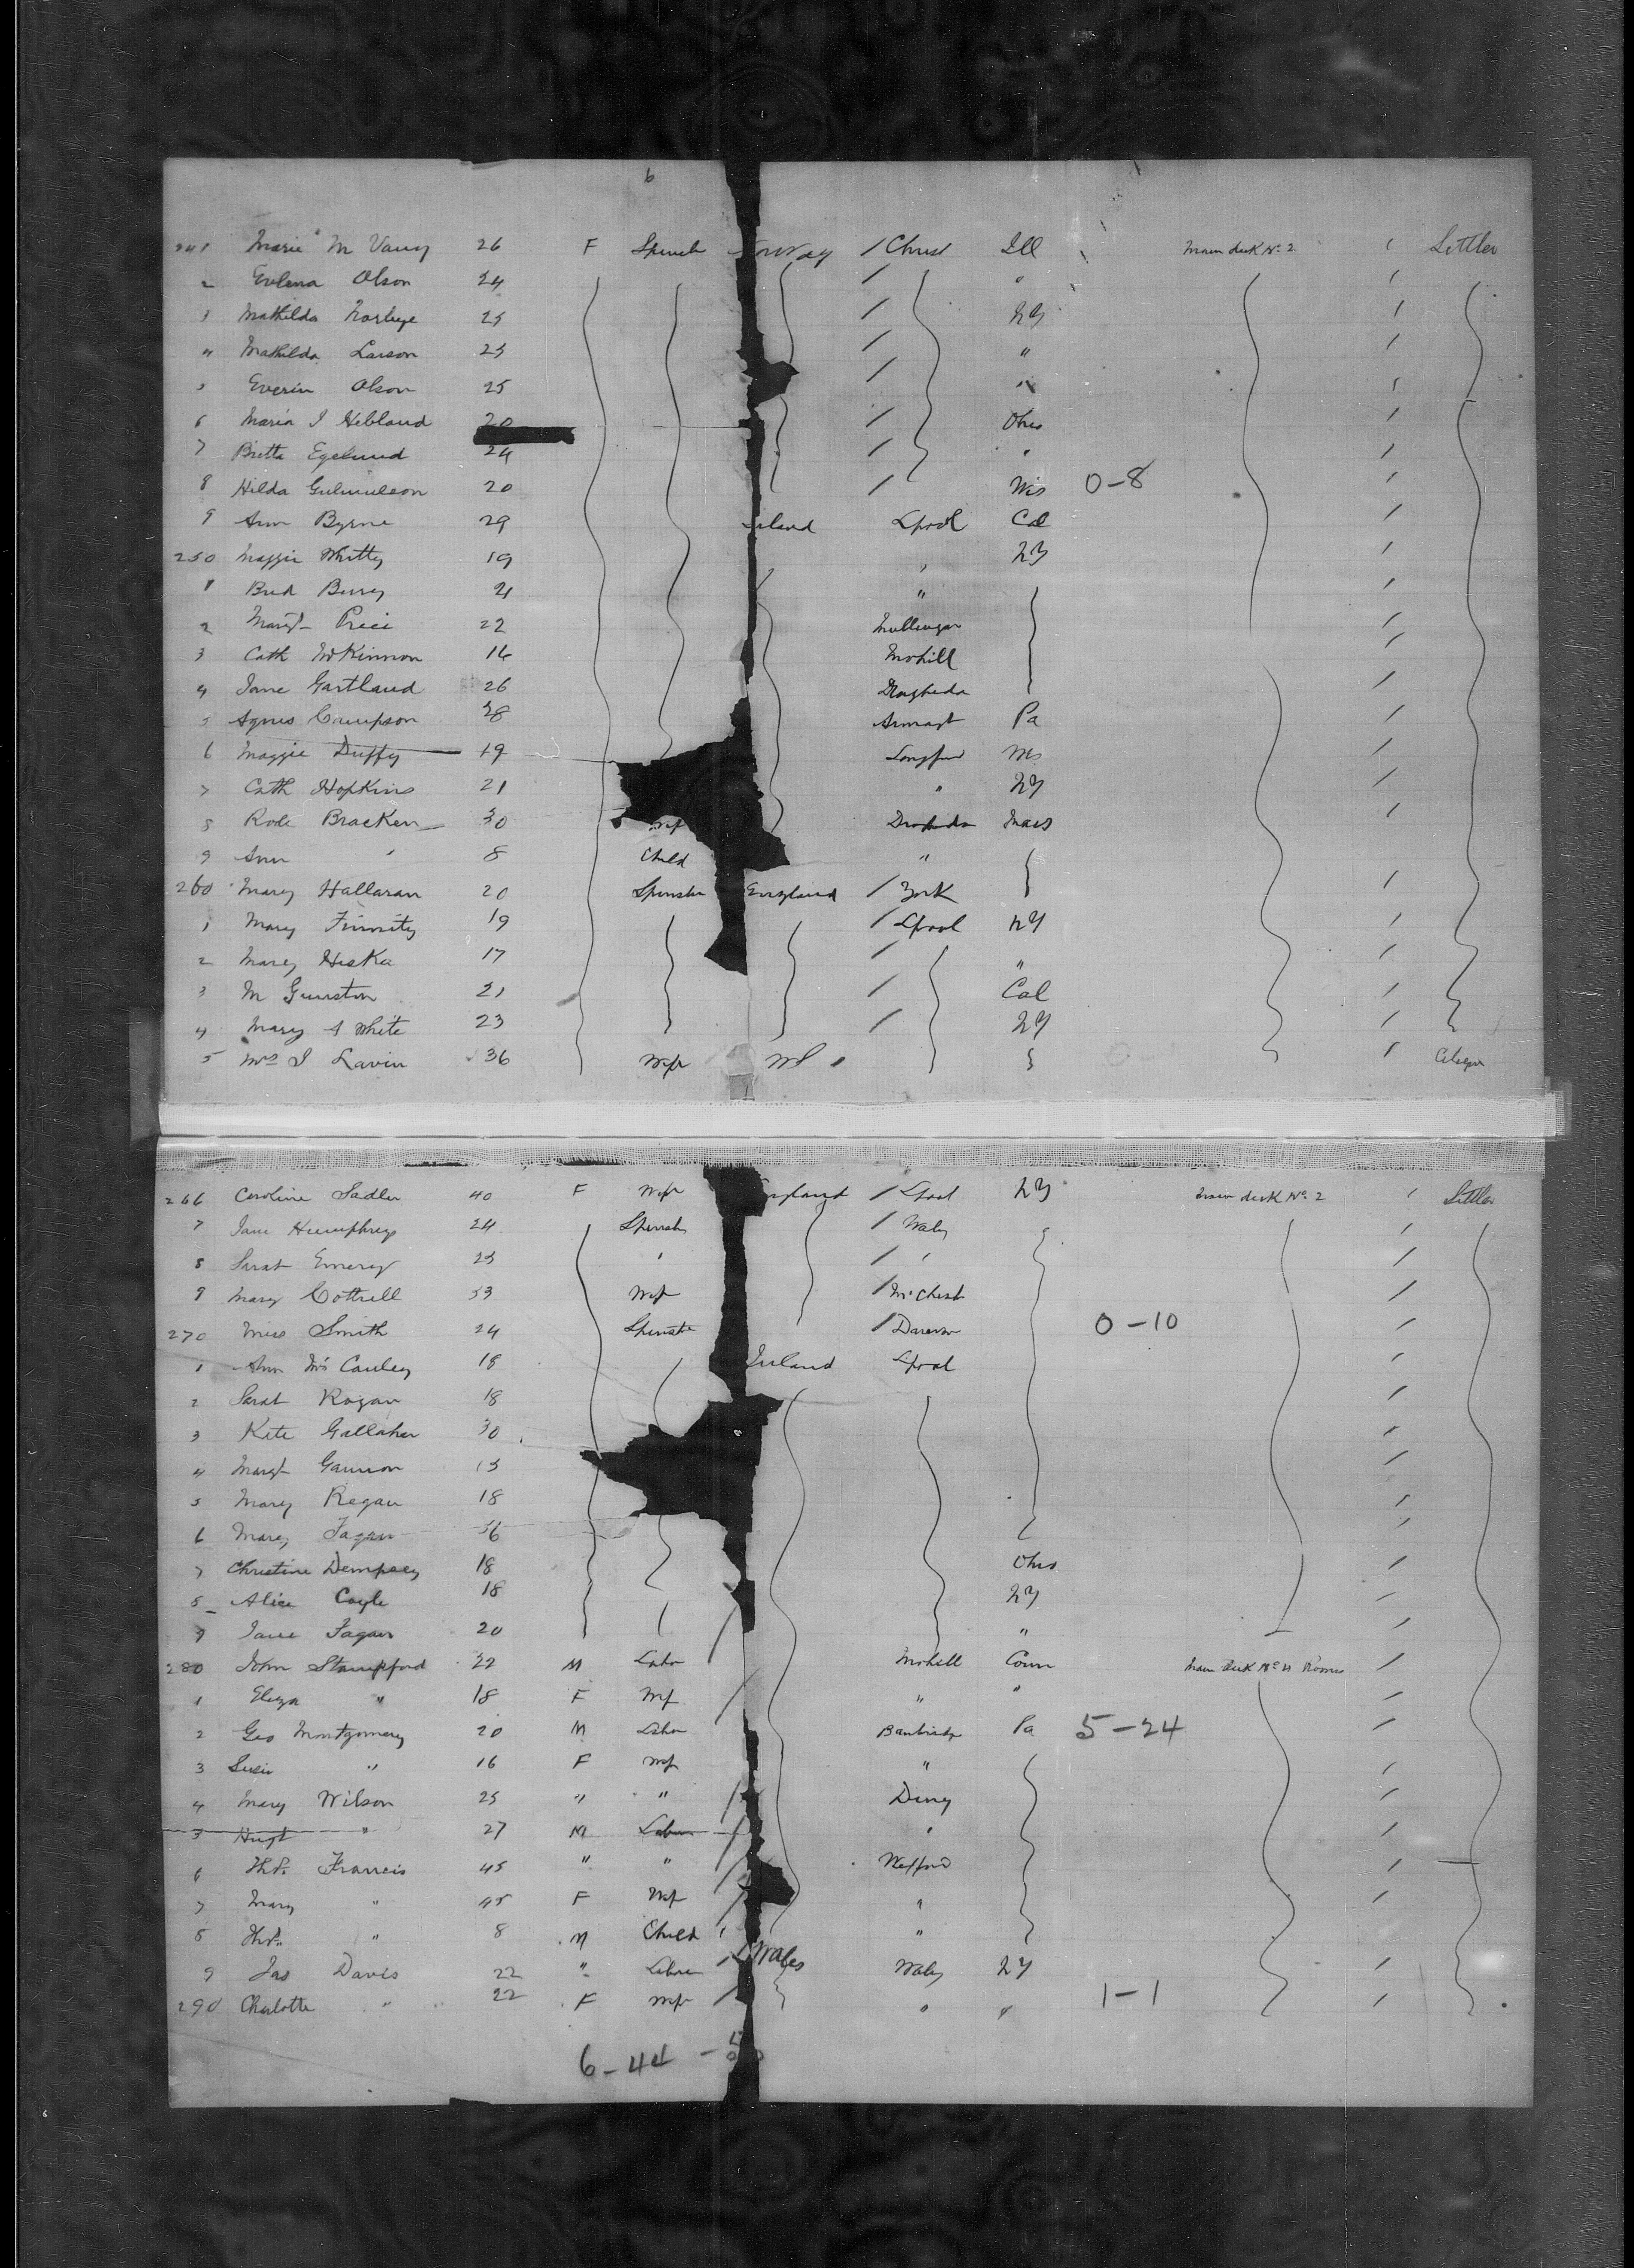 6
241 Marie M Vaury 26 F Spinster Norway / Christ Ill Main deck No 2 / Settler
2 Evlena Olson 24 / "
3 Mathilda 25 / NY /
4 Mathilda Larson 25 / " /
5 Everin Olson 25 / " /
6 Maria J Hebland 20 / Ohio /
7 Britta Egelund 24 / " /
8 Hilda 20 / Wis 0-8 /
9 Ann Byrne 29 Ireland Lpool Cal /
250 Maggie Whitty 19 " NY /
1 Brid 21 " /
2 Margt Price 22 Mullingar /
3 Cath McKinnon 16 Mohill /
4 Jane Gartland 26 Drogheda /
5 Agnes Campson 28 Armagh Pa /
6 Maggie Duffy 19 Longford Ms /
7 Cath Hopkins 21 " NY /
8 Rode Bracken 30 Wife Drogheda Mass /
9 Ann " 8 Child "
260 Mary Hallaran 20 Spinster England / York /
1 Mary Finnity 19 / Lpool NY /
2 Mary Heska 17 / " /
3 M Gunston 21 / Cal /
4 Mary A White 23 / NY /
5 Mrs J Lavin 36 Wife /
266 Caroline Sadler 40 F Wife England / Lpool NY Main deck No 2 / Settler
7 Jane Humphreys 24 Spinster / Wales /
8 Sarah Emery 25 " / " /
9 Mary Cottrell 53 Wife / M'Chest /
270 Miss Smith 24 Spinster / Darwen 0-10 /
1 Ann McCauley 18 Ireland Lpool /
2 Sarah Rogan 18 /
3 Kate Gallaher 30 /
4 Margt Gannon 15 /
5 Mary Regan 18 /
6 Mary Fagan 36 /
7 Christine Dempsey 18 Ohio /
8 Alice Coyle 18 NY /
9 Jane Fagan 20 " /
280 John Stampford 22 M Labor Mohill Conn Main deck No 4 Rooms /
1 Eliza " 18 F Wif " " /
2 Geo Montgomery 20 M Labor Banbridge Pa 5-24 /
3 Susie " 16 F Wif " /
4 Mary Wilson 25 " " / Derry /
5 Hugh " 27 M Labor / " /
6 Thos. Francis 45 " " / Wexford /
7 Mary " 45 F Wif / " /
8 Thos. " 8 M Child / "
9 Jas Davis 22 " Labor / Wales Wales NY /
290 Charlotte " 22 F Wife / " " 1-1 /
6-44 -